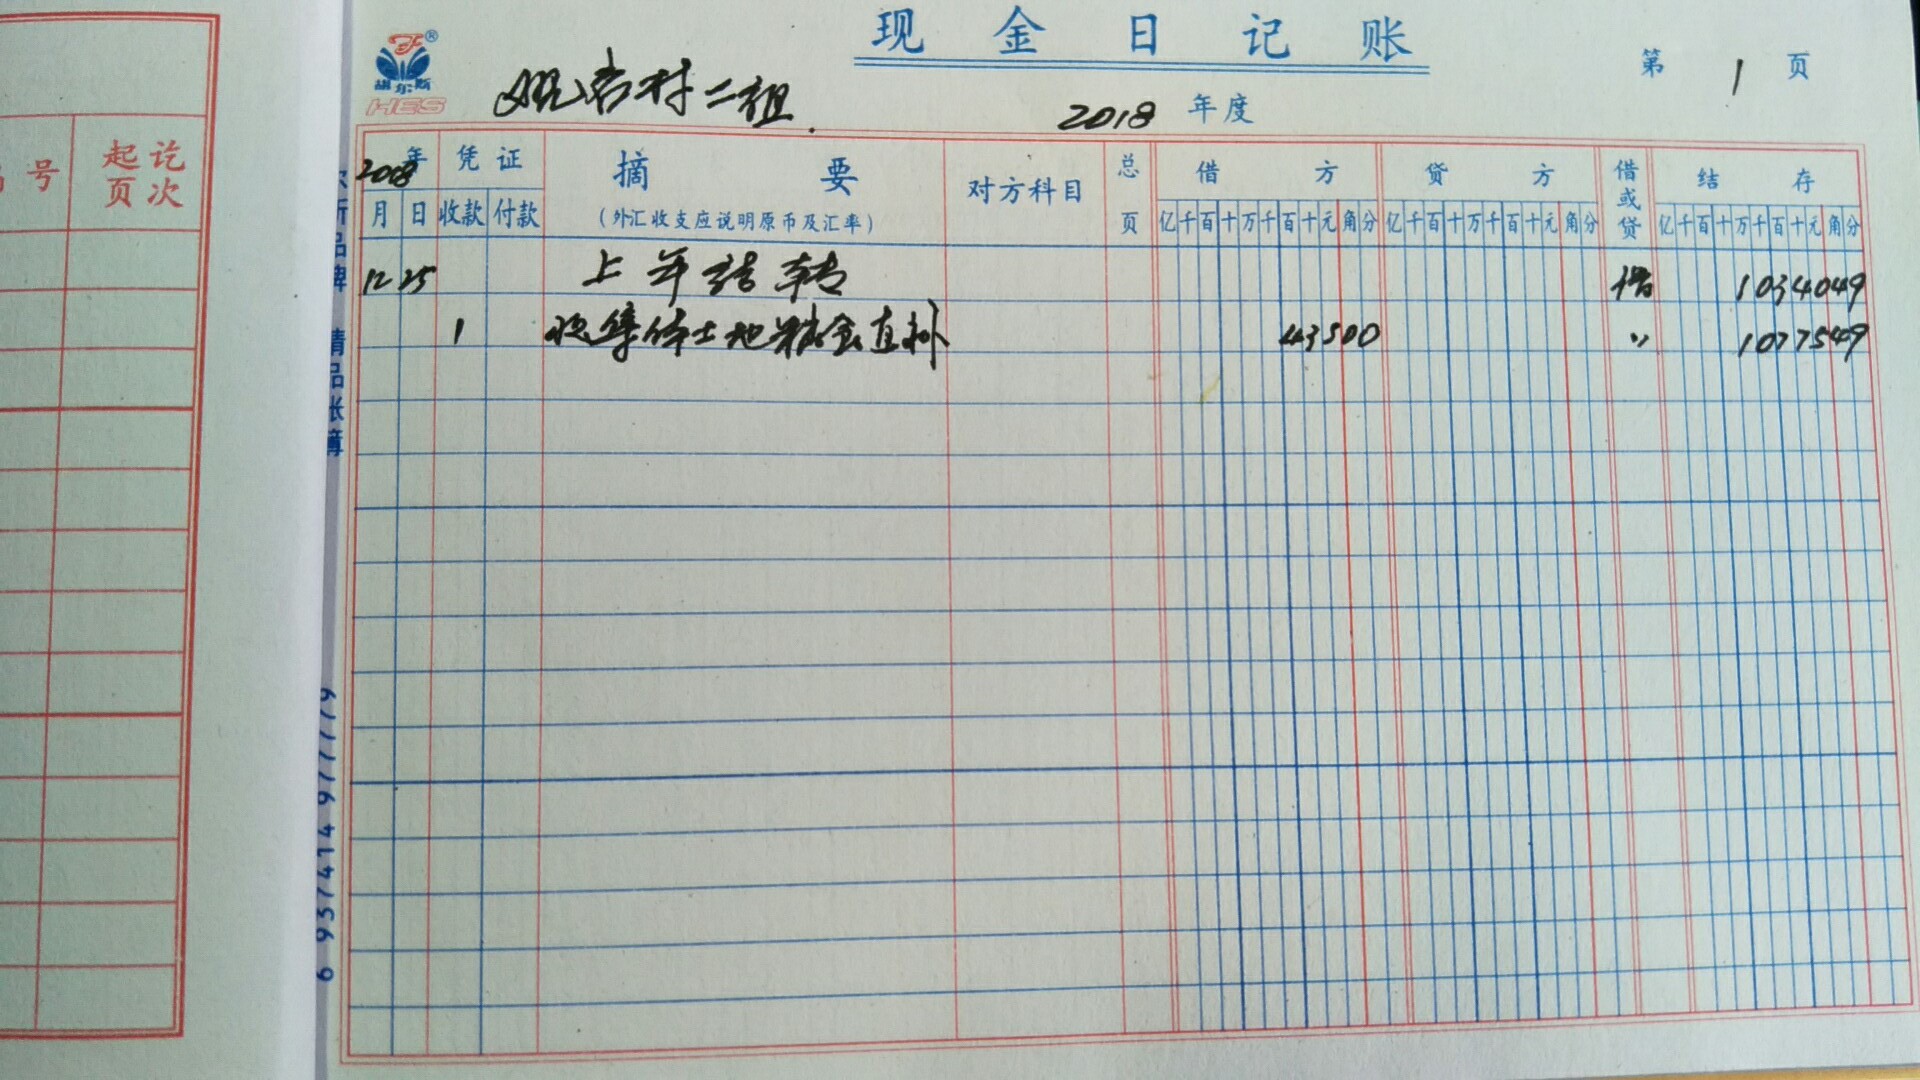 号 起讫
页次
赫尔斯
HES
现金日记账
第 1 页
村二组
2018 年度
年 凭证 摘要 对方科目 总页 借方 贷方 借或贷 结存
月 日 收款 付款 (外汇收支应说明原币及汇率) 亿千百十万千百十元角分 亿千百十万千百十元角分 亿千百十万千百十元角分
12 25 上年结转 借 1034049
1 收集体土地粮食直补 43500 〃 1077549
品牌 精品账簿
6 937414 977779